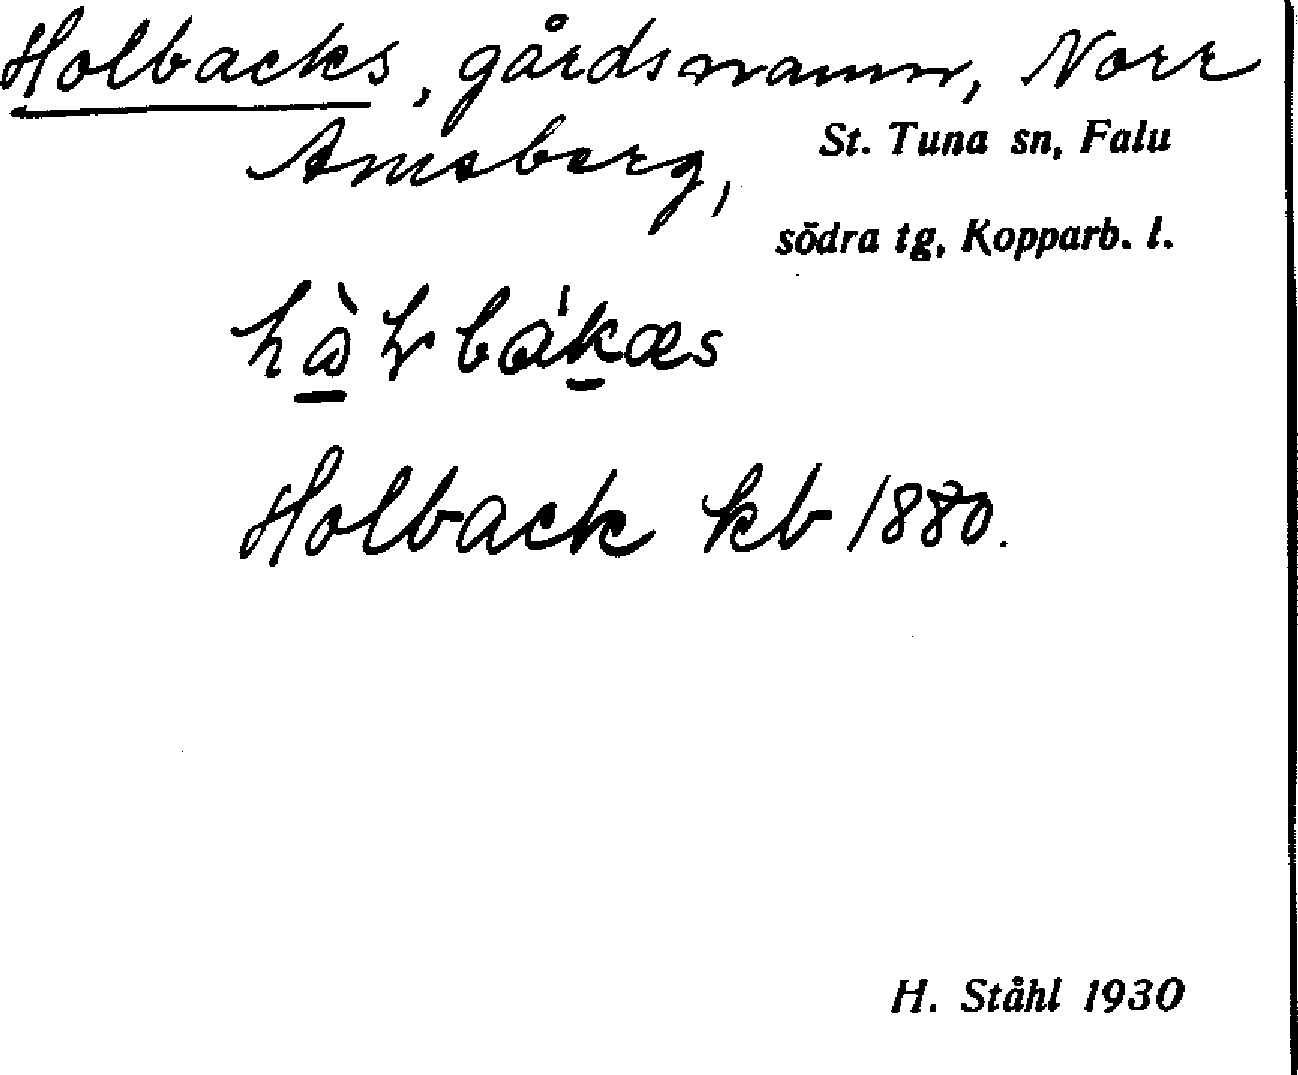 Holbacks, gårdsnamn, Norr
Amsberg,
St. Tuna sn, Falu
södra tg, Kopparb. l.
Holback kb 1880.
H. Ståhl 1930